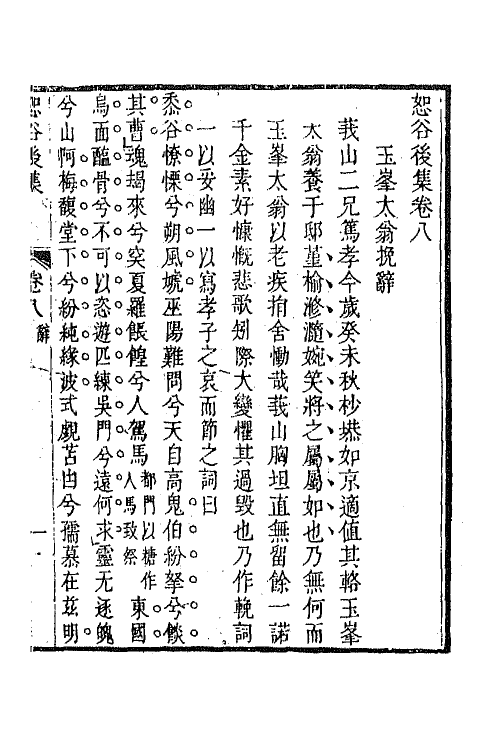 恕谷後集卷八
玉峯太翁挽辭
莪山二兄篤孝今歲癸未秋杪塨如京適值其輅玉峯
太翁養于邸堇榆滫瀡婉笑將之屬屬如也乃無何而
玉峯太翁以老疾捐舍慟哉莪山胸坦直無留餘一諾
千金素好慷慨悲歌矧際大變懼其過毀也乃作輓詞
一以妥幽一以寫孝子之哀而節之詞曰
黍谷憭慄兮朔風號巫陽難問兮天自高鬼伯紛拏兮餤
其曹魂朅來兮突夏羅餦餭兮人駕馬都門以糖作人馬致祭東國
烏面醢骨兮不可以恣遊匹練吳門兮遠何求靈無逐魄
兮山阿梅馥堂下兮紛純緣波式觑苫甴兮孺慕在茲明
恕谷後集 卷八 辭 一